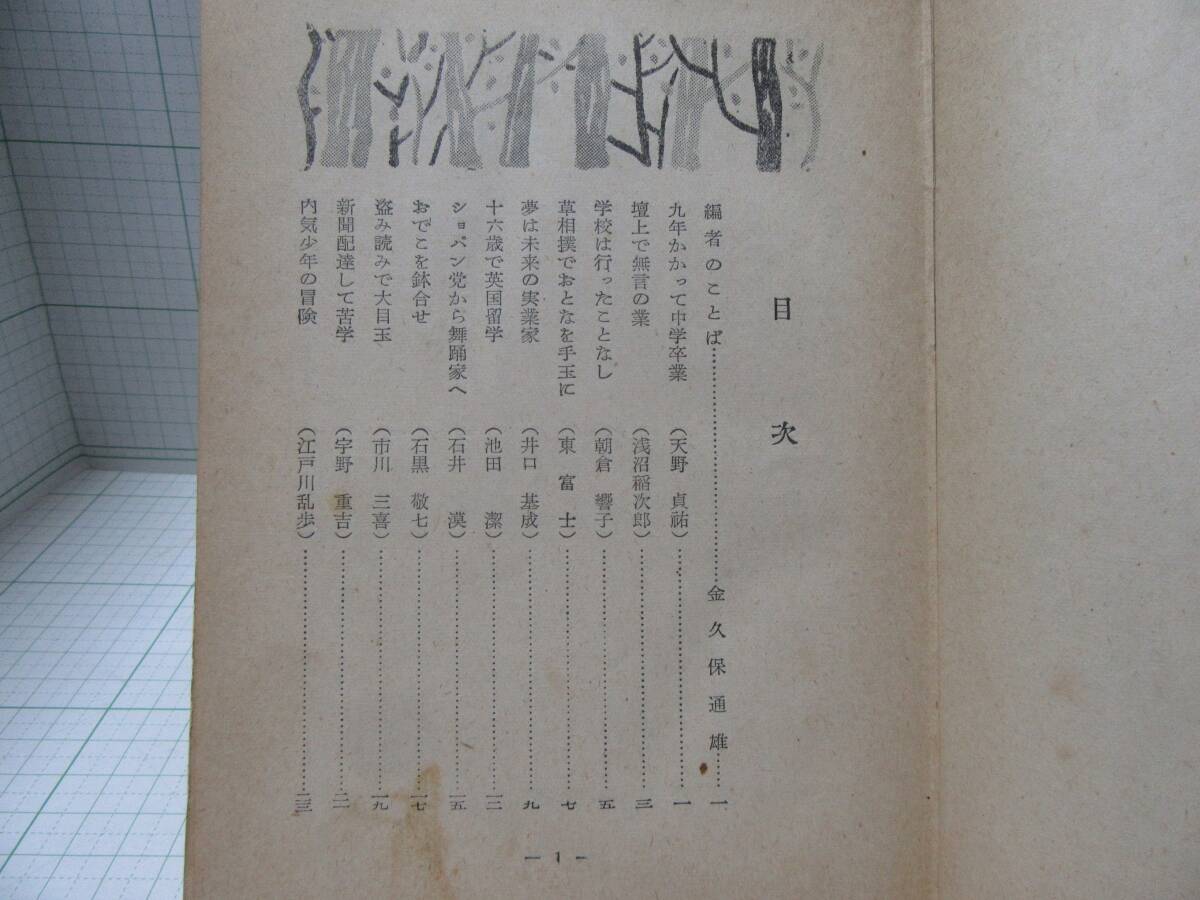 目次
編者のことば……金久保通雄……一
九年かかって中学卒業（天野貞祐）……一
壇上で無言の業（浅沼稲次郎）……三
学校は行ったことなし（朝倉響子）……五
草相撲でおとなを手玉に（東富士）……七
夢は未来の実業家（井口基成）……九
十六歳で英国留学（池田潔）……一二
ショパン党から舞踊家へ（石井漠）……一五
おでこを鉢合せ（石黒敬七）……一七
盗み読みで大目玉（市川三喜）……一九
新聞配達して苦学（宇野重吉）……二一
内気少年の冒険（江戸川乱歩）……二三
— 1 —